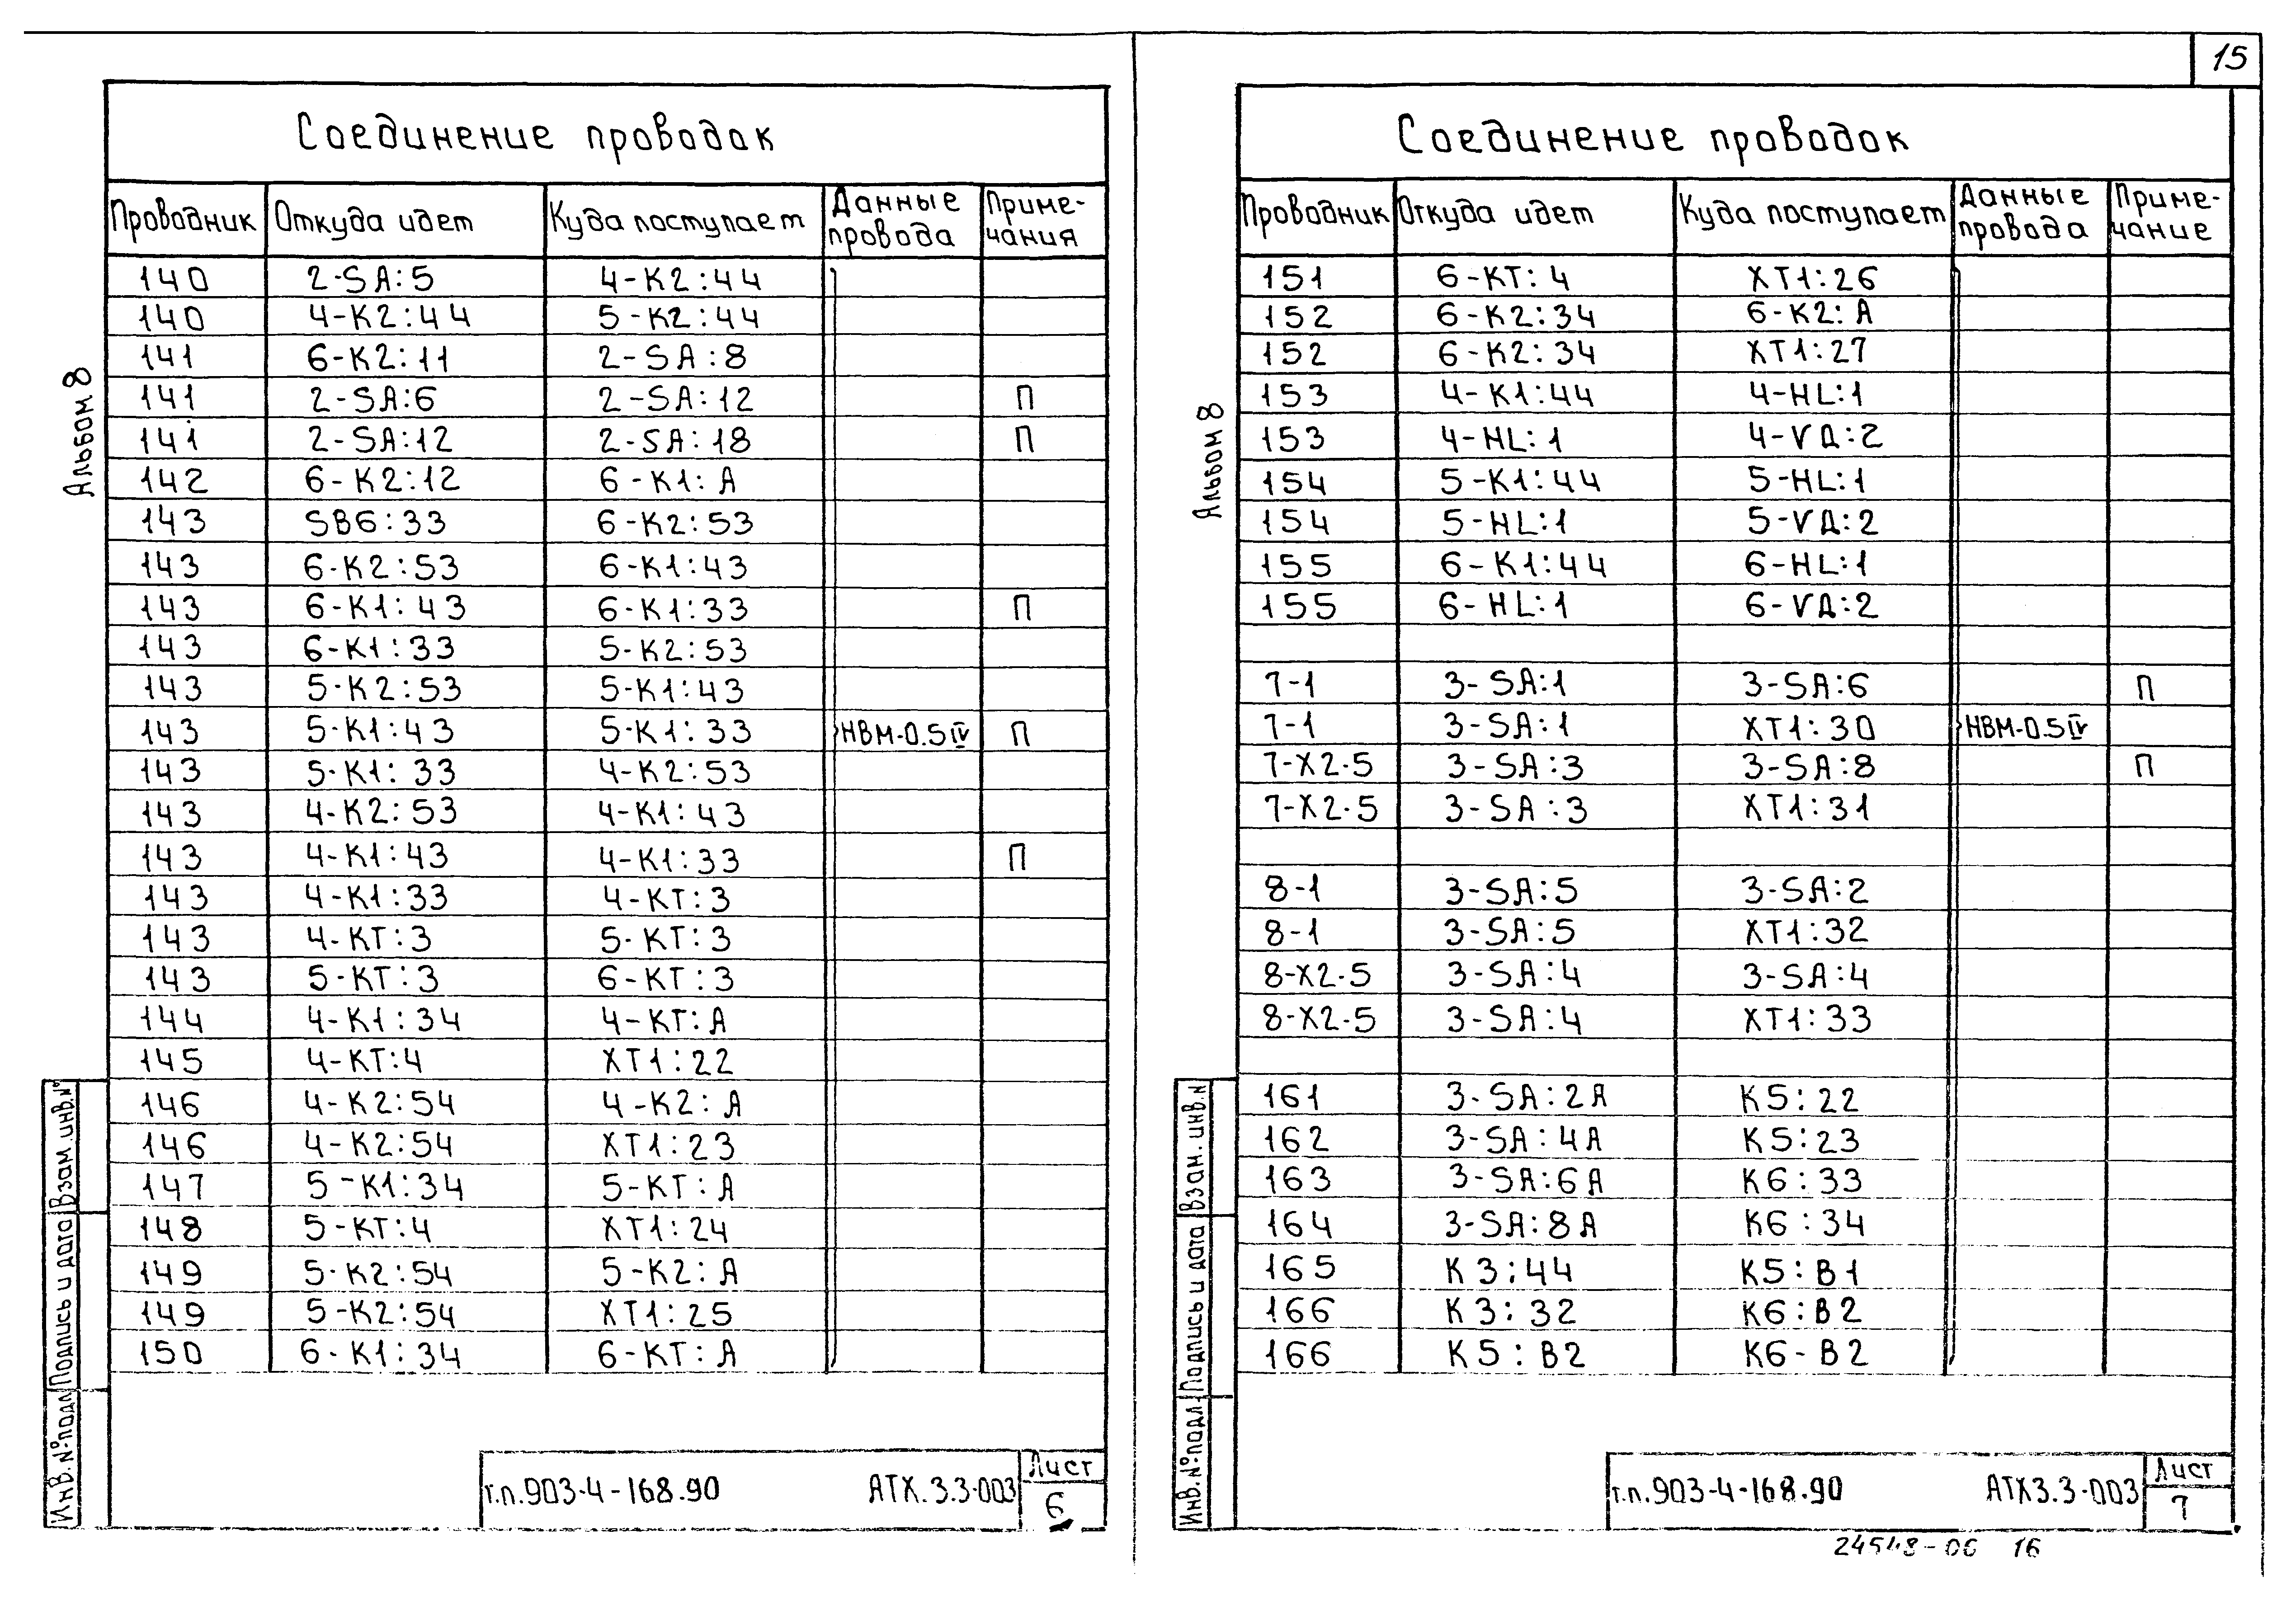 15
Соединение проводок
Проводник Откуда идет Куда поступает Данные провода Примечания
140 2-SA:5 4-K2:44
140 4-K2:44 5-K2:44
141 6-K2:11 2-SA:8
141 2-SA:6 2-SA:12 П
141 2-SA:12 2-SA:18 П
142 6-K2:12 6-K1:A
143 SB6:33 6-K2:53
143 6-K2:53 6-K1:43
143 6-K1:43 6-K1:33 П
143 6-K1:33 5-K2:53
143 5-K2:53 5-K1:43
143 5-K1:43 5-K1:33 НВМ-0.5 IV П
143 5-K1:33 4-K2:53
143 4-K2:53 4-K1:43
143 4-K1:43 4-K1:33 П
143 4-K1:33 4-KT:3
143 4-KT:3 5-KT:3
143 5-KT:3 6-KT:3
144 4-K1:34 4-KT:A
145 4-KT:4 XT1:22
146 4-K2:54 4-K2:A
146 4-K2:54 XT1:23
147 5-K1:34 5-KT:A
148 5-KT:4 XT1:24
149 5-K2:54 5-K2:A
149 5-K2:54 XT1:25
150 6-K1:34 6-KT:A
Альбом 8
Инв.№подл Подпись и дата Взам.инв.№
т.п.903-4-168.90 АТХ.3.3-003 Лист 6
Соединение проводок
Проводник Откуда идет Куда поступает Данные провода Примечание
151 6-KT:4 XT1:26
152 6-K2:34 6-K2:A
152 6-K2:34 XT1:27
153 4-K1:44 4-HL:1
153 4-HL:1 4-VД:2
154 5-K1:44 5-HL:1
154 5-HL:1 5-VД:2
155 6-K1:44 6-HL:1
155 6-HL:1 6-VД:2
7-1 3-SA:1 3-SA:6 П
7-1 3-SA:1 XT1:30 НВМ-0.5 IV
7-X2-5 3-SA:3 3-SA:8 П
7-X2-5 3-SA:3 XT1:31
8-1 3-SA:5 3-SA:2
8-1 3-SA:5 XT1:32
8-X2-5 3-SA:4 3-SA:4
8-X2-5 3-SA:4 XT1:33
161 3-SA:2A K5:22
162 3-SA:4A K5:23
163 3-SA:6A K6:33
164 3-SA:8A K6:34
165 K3:44 K5:B1
166 K3:32 K6:B2
166 K5:B2 K6-B2
Альбом 8
Инв.№подл. Подпись и дата Взам.инв.N
т.п.903-4-168.90 АТХ3.3-003 Лист 7
24548-06 16